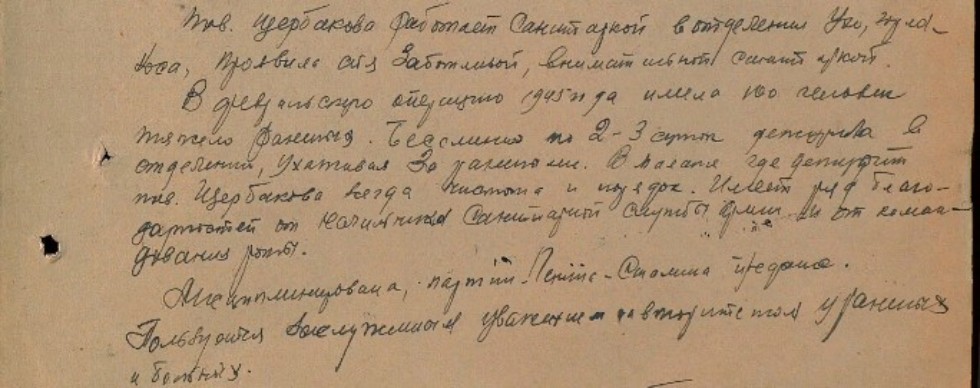 Тов. Щербакова работает санитаркой в отделении ухо, горла-
носа, проявила себя заботливой, внимательной санитаркой.
В февральскую операцию 1945 года имела 100 человек
тяжело раненых. Бессменно по 2-3 суток дежурила в
отделении, ухаживая за ранеными. В палате где дежурит
тов. Щербакова везде чистота и порядок. Имеет ряд благо-
дарностей от начальника санитарной службы армии и от коман-
дования роты.
Дисциплинирована, партии Ленина-Сталина предана.
Пользуется заслуженным уважением и авторитетом у раненых
и больных.